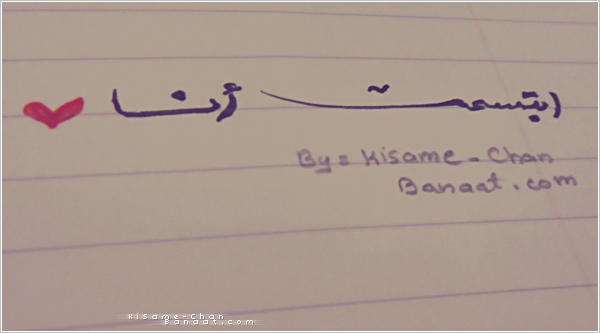 ابتسمت أنا
By = Kisame - Chan
Banaat . com
Kisame-Chan
Banaat.com